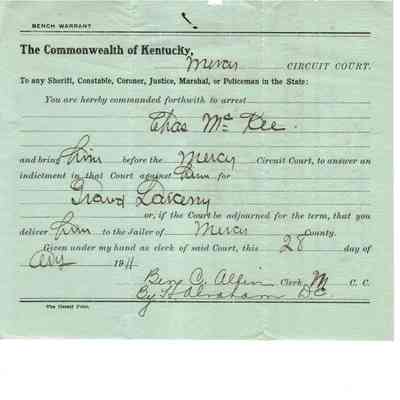 BENCH WARRANT
The Commonwealth of Kentucky,
Mercer CIRCUIT COURT.
To any Sheriff, Constable, Coroner, Justice, Marshal, or Policeman in the State:
You are hereby commanded forthwith to arrest
Chas Mc Kee.
and bring him before the Mercer Circuit Court, to answer an
indictment in that Court against him for
Grand Larceny
or, if the Court be adjourned for the term, that you
deliver him to the Jailer of Mercer County.
Given under my hand as clerk of said Court, this 28 day of
1911
Ben C. Allin Clerk M C. C.
By H Abraham D C.